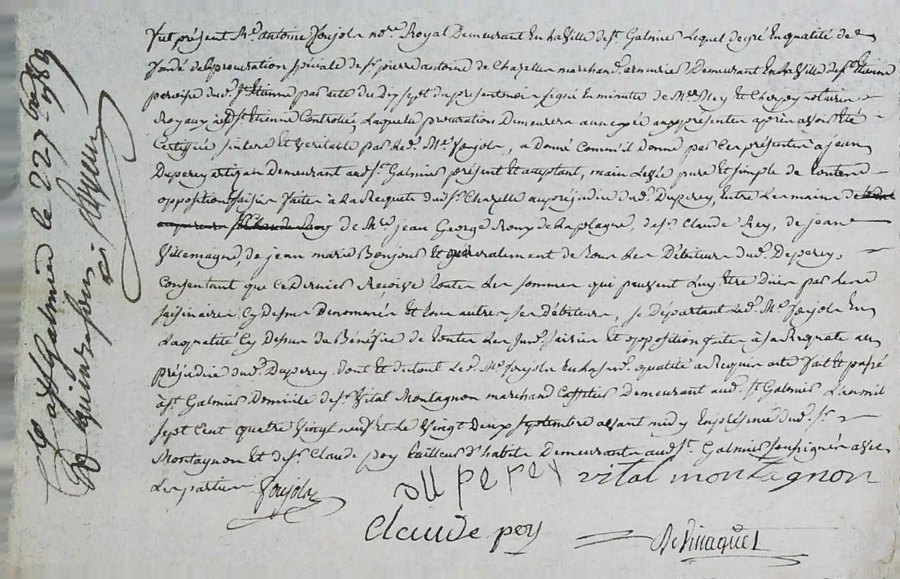 Fut présent Me. antoine Joujoln nore. Royal Demeurant En La Ville de St. Galmier Lequel de gré En qualité de
fondé de la procuration spéciale de Sr. pierre antoine de Chazelles marchand armurier Demeurant En La Ville de St. Etienne
paroisse dud. St. Etienne par acte du Dix sept du présent mois signé En minute de Mes. Rey Et notaires
Royaux aud. St. Etienne Controllé, Laquelle procuration Demeurera annexée aux présentes après avoir été
Certiffiée sincère Et Véritable par Led. Me. Joujoln, a Donné Comm'il Donne par Ces présentes à jean
Duperey artizan Demeurant aud. St. Galmier présent Et acceptant, main Levée pure Et simple de toutes
opposition saisies faites à La Requete dud. Sr. Chazelle au préjudice dud. Duperey, entre Les mains de
de Me. jean George Romy de Laplagne, de Sr. Claude Rey, de jean
Villemagne, de jean marie Bonjour Et généralement de tous Les Débiteurs dud. Duperey,
Consentant que Ce Dernier Reçoive toutes Les sommes qui peuvent Luy être Dües par Les
saisinaires Cy dessus Denommés Et tous autres ses débiteurs, se départant Led. Me. Joujoln En
La qualité Cy Dessus du Bénéfice de toutes Les saisies Et opposition faites à sa Requete au
préjudice dud. Duperey, Dont Et du tout Led. Me. Joujoln En La susd. qualité a Requis acte fait Et passé
à St. Galmier Domicile de Sr. Vital Montagnon marchand Caffetier Demeurant aud. St. Galmier L'an mil
sept Cent quatre Vingt neuf Et Le Vingt Deux septembre avant midy En présence dud. Sr.
Montagnon Et de Sr. Claude poy tailleur d'habits Demeurants aud. St. Galmier soussignés avec
Les parties Joujoln
duperey vital montagnon
Claude poy
Co. a St Galmier le 22 7bre
1789
Rs quinze sous